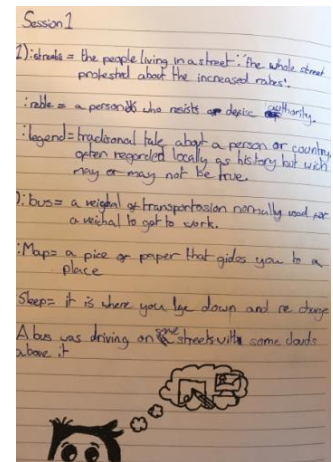 Session 1
1): streets = the people living in a street: 'the whole street
protested about the increased rates'.
: reble = a person who resists or defise authority.
: legend = tradisonal tale about a person or country
often regorded locally as history but wich
may or may not be true.
): bus = a veighal of transportasion normally used
a veichal to get to work.
: Map = a pice of paper that gides you to a
place
Sleep = it is where you lye down and re charge
A bus was driving on some streets with some clouds
above it